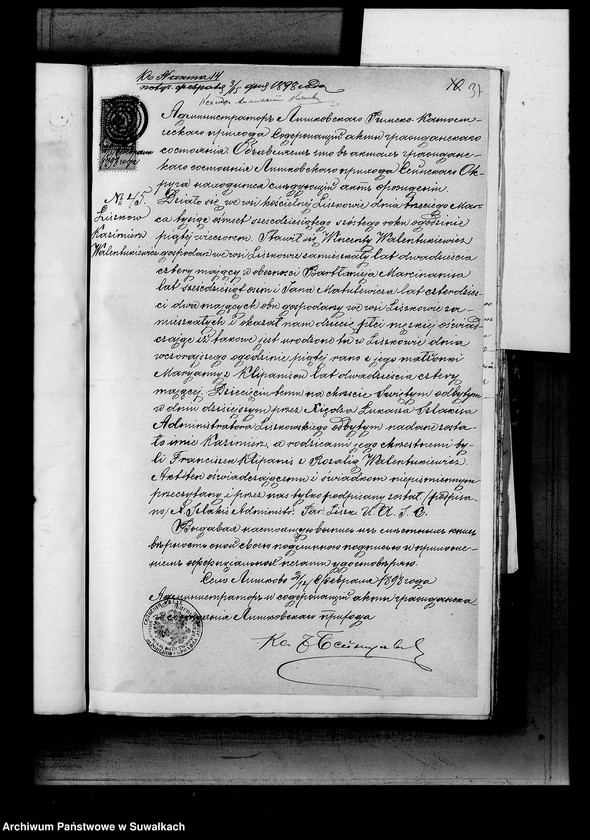 Къ № акта 14
10. 37
Администраторъ Лишковскаго Римско-Католи-
ческаго прихода Содержащій акты гражданскаго
состоянія. Объявляемъ что въ актахъ граждан-
скаго состоянія Лишковскаго прихода Сейнскаго Ок-
руга находится слѣдующій актъ рожденія.
№ 45.
Liszkow
Kazimierz
Walentukiewicz
Działo się we wsi kościelnej Liszkowie dnia trzeciego Mar-
ca tysiąc ośmset sześćdziesiątego szóstego roku o godzinie
piątej wieczorem. Stawił się Wincenty Walentukiewicz
gospodarz we wsi Liszkowie zamieszkały lat dwadzieścia
cztery mający w obecności Bartłomieja Marcinanisa
lat sześćdziesiąt osim i Jana Matulewicza lat czterdzieś-
ci dwa mających obu gospodarzy we wsi Liszkowie za-
mieszkałych i okazał nam dziecię płci męzkiej oświad-
czając iż takowe jest urodzone tu w Liszkowie dnia
wczorajszego o godzinie piątej rano z jego małżonki
Maryanny z Klipanisow lat dwadzieścia cztery
mającej. Dziecięciu temu na chrzcie Świętym odbytym
w dniu dzisiejszym przez Xiędza Łukasza Szlakisa
Administratora Liszkowskiego odbytym nadane zosta-
ło imie Kazimierz, a rodzicami jego chrzestnemi by-
li Franciszek Klipanis z Rozalią Walentukiewicz.
Akt ten oświadczającemu i świadkom niepiśmiennym
przeczytany i przez nas tylko podpisany został (podpisa-
no) X. Szlakis Administr. Par. Liszk. U. A. S. C.
Выдавая настоящую выпись
вѣрность оной своею подписью и приложе-
ніемъ оффиціальной печати удостовѣряю.
Село Лишково 2/14 Февраля 1898 года
Администраторъ и содержащій акты гражданска-
го состоянія Лишковскаго прихода
Кс.
Archiwum Państwowe w Suwałkach